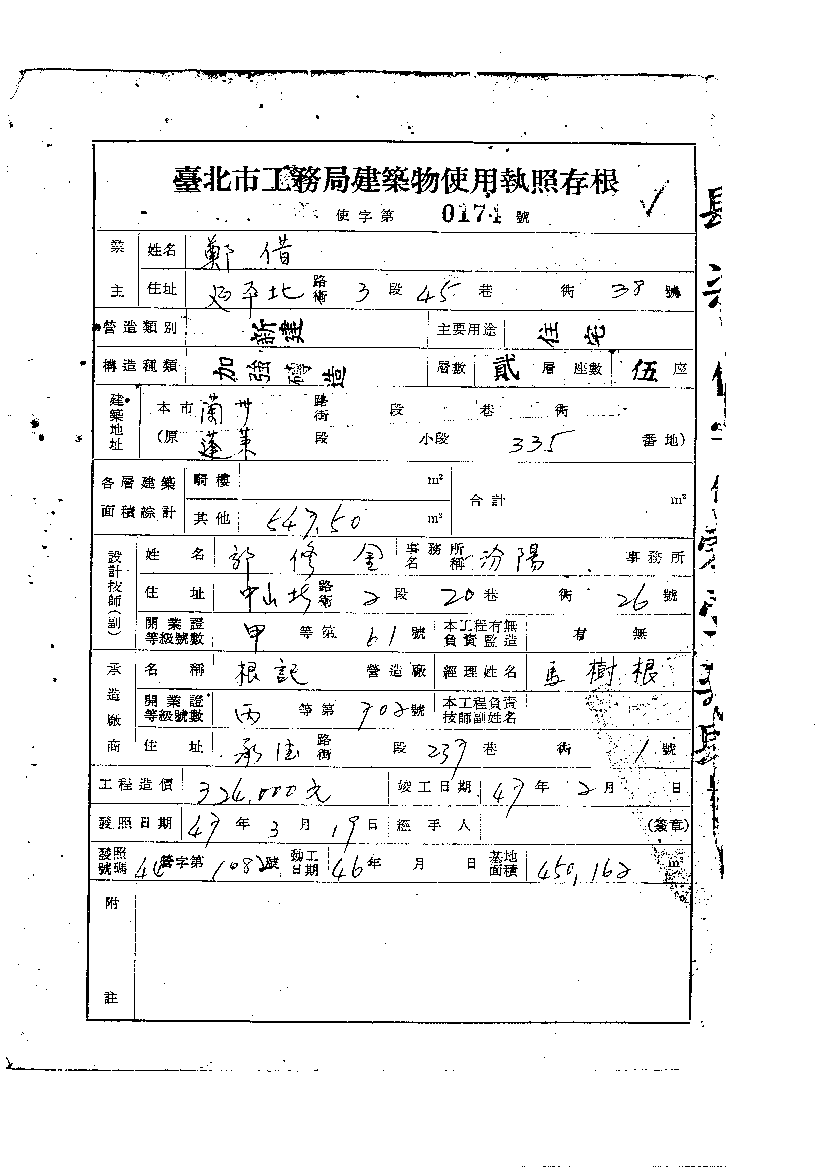 臺北市工務局建築物使用執照存根
使字第 0174 號
業主 姓名 鄭借
住址 延平北 路街 3 段 45 巷 衖 38 號
營造類別 新建 主要用途 住宅
構造種類 加強磚造 層數 貳 層 座數 伍 座
建築地址 本市 蘭州 路街 段 巷 衖
(原 蓬萊 段 小段 335 番地)
各層建築面積綜計 騎樓 m² 合計 m²
其他 547.50 m²
設計技師(副) 姓名 郭修金 事務所名稱 汾陽 事務所
住址 中山北 路街 2 段 20 巷 衖 26 號
開業證等級號數 甲 等第 61 號 本工程有無負責監造 有 無
承造廠商 名稱 根記 營造廠 經理姓名 馬樹根
開業證等級號數 丙 等第 702 號 本工程負責技師副姓名
住址 承德 路街 段 237 巷 衖 1 號
工程造價 324,000元 竣工日期 47 年 2 月 日
發照日期 47 年 3 月 19 日 經手人 (簽章)
發照號碼 44 營字第 1082 號 動工日期 46 年 月 日 基地面積 450,162 m²
附註